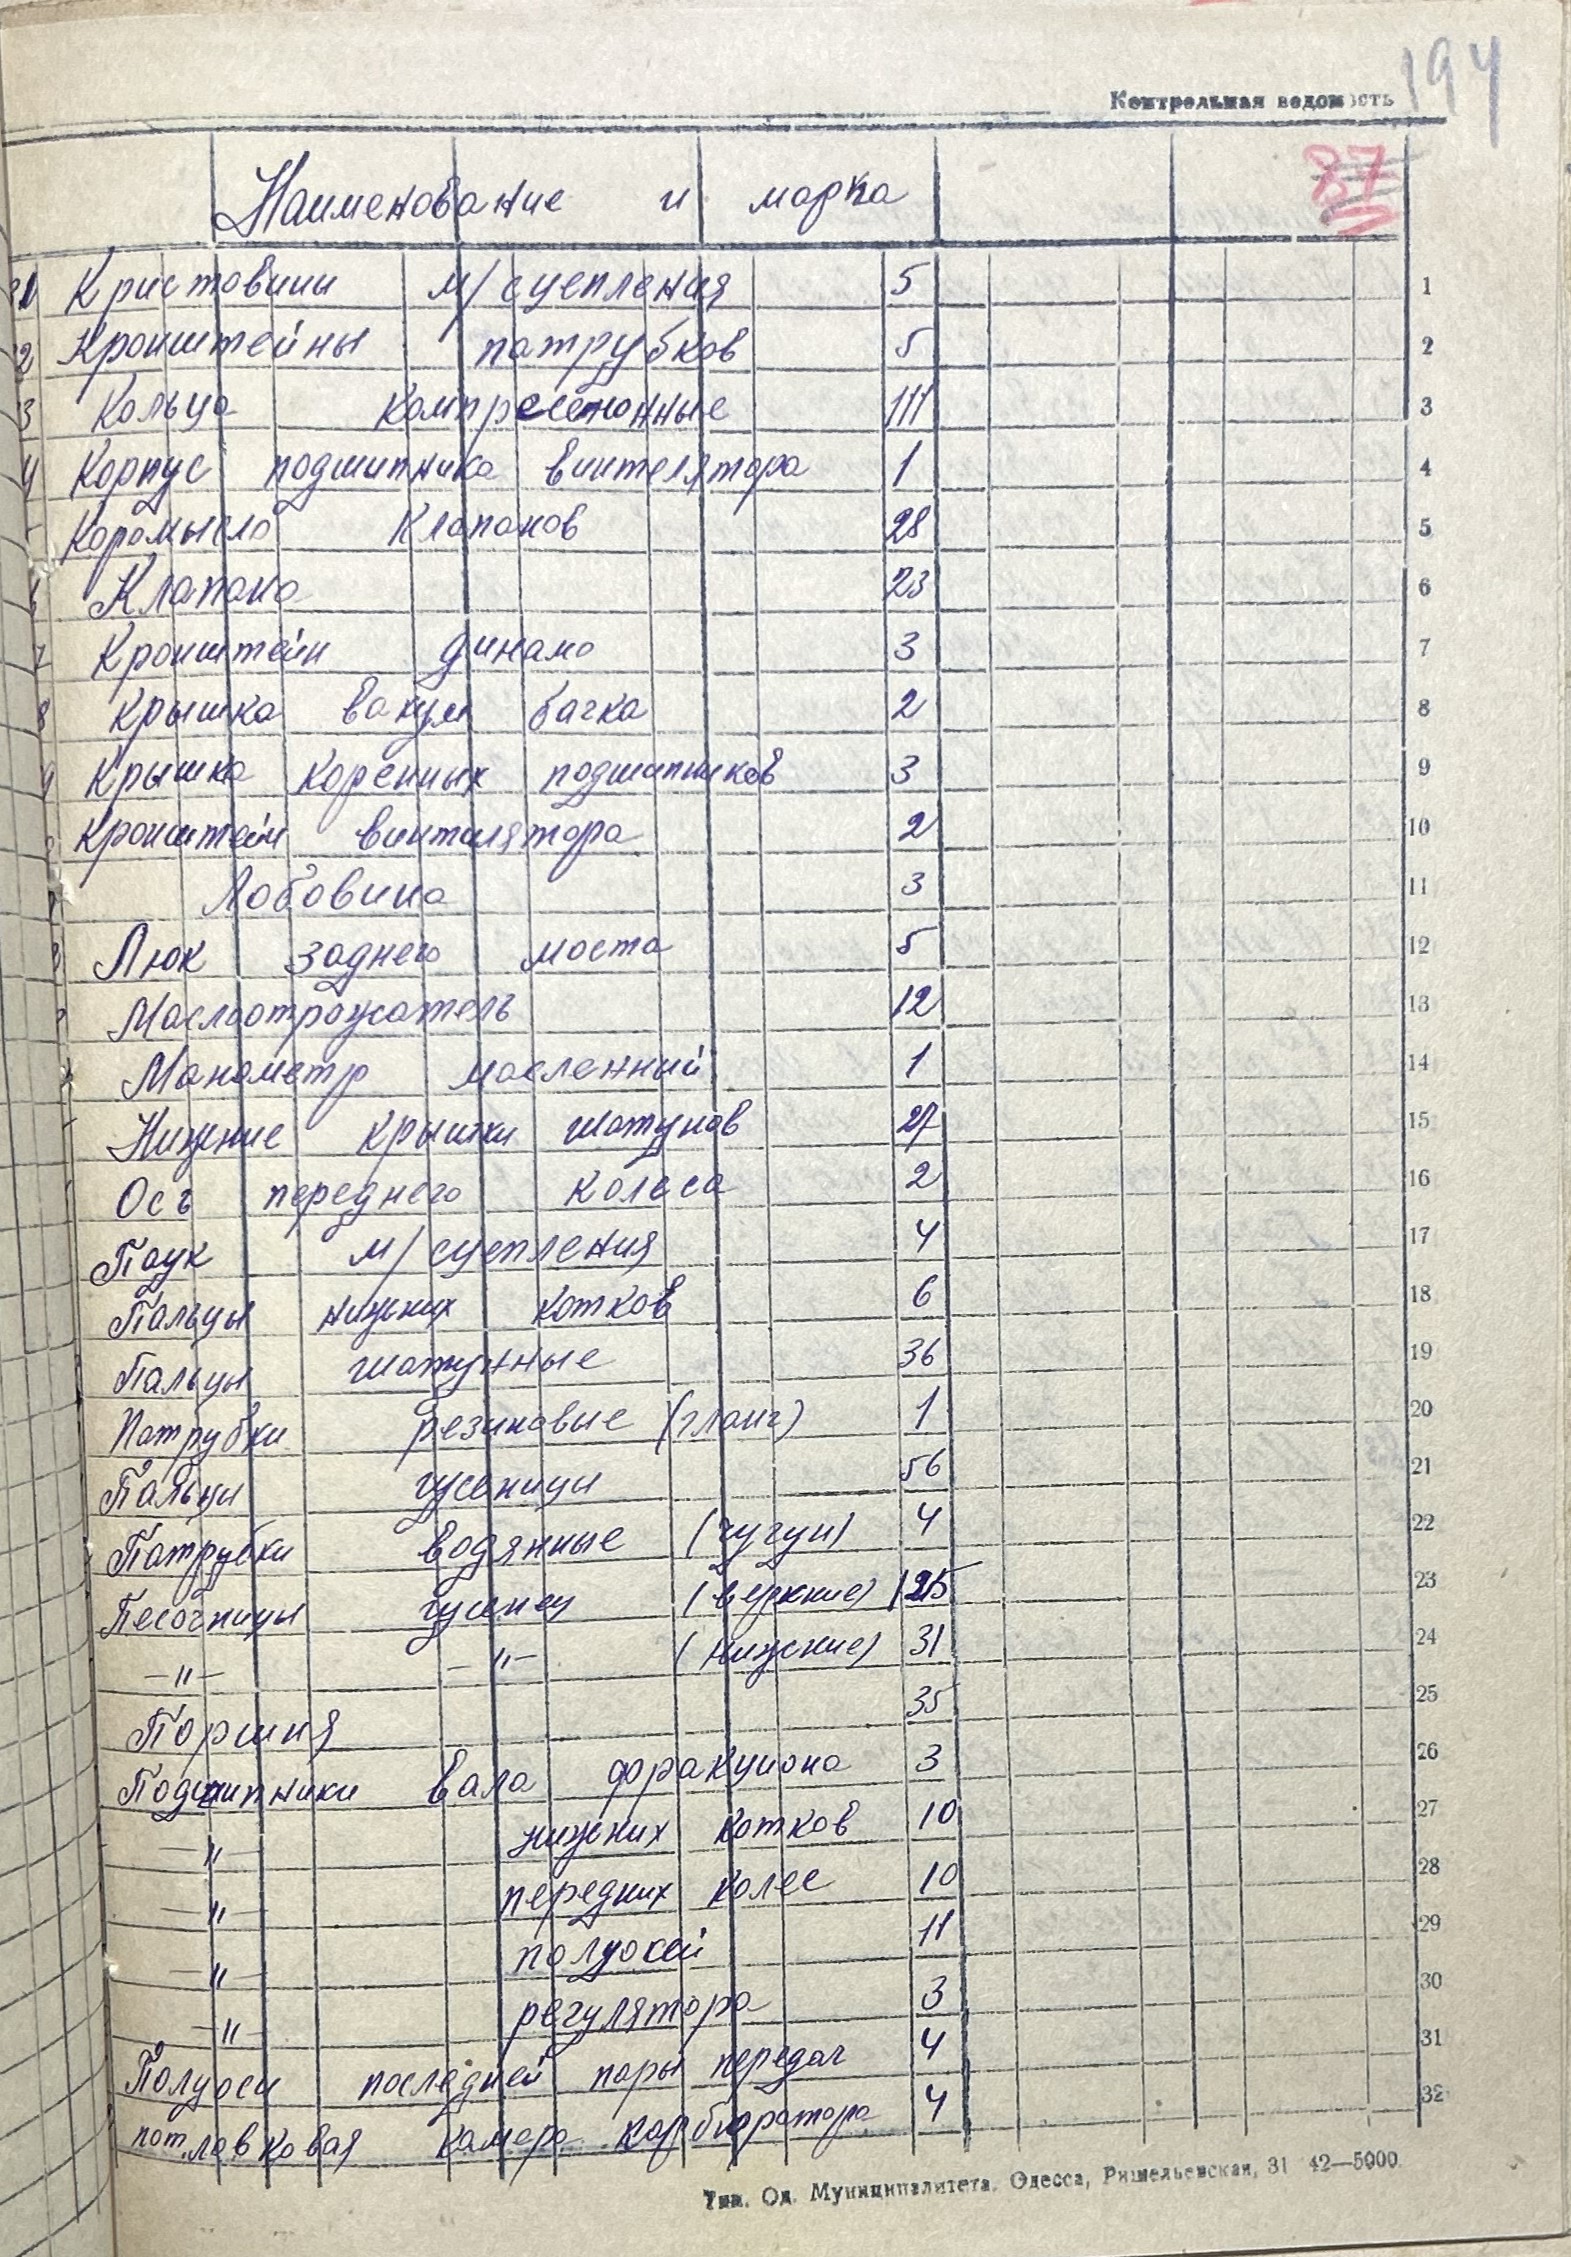 194
Контрольная ведомость
87
Наименование и марка
Кристовини м/сцепления 5 1
2 Кронштейны патрубков 5 2
3 Кольца компресенонные 111 3
4 Корпус подшипника винтелятора 1 4
Коромысло Клапанов 28 5
Клапана 23 6
7 Кронштейн динамо 3 7
8 Крышка вакум бачка 2 8
9 Крышка коренных подшипников 3 9
Кронштейн винтилятора 2 10
Лобовина 3 11
Люк заднего моста 5 12
Маслоотражатель 12 13
Манометр масленный 1 14
Нижние крышки шатунов 27 15
Ось переднего колеса 2 16
Паук м/сцепления 4 17
Пальцы нижних котков 6 18
Пальцы шатунные 36 19
Патрубки резиновые (шланг) 1 20
Пальцы гусеницы 56 21
Патрубки водянные (чугун) 4 22
Песочницы гусениц (верхние) 125 23
—"— —"— (нижние) 31 24
Поршня 35 25
Подшипники вала фракциона 3 26
—"— нижних котков 10 27
—"— передних колес 10 28
—"— полуосей 11 29
—"— регулятора 3 30
Полуоси последней пары передач 4 31
поплавковая камера карбюратора 4 32
Тип. Од. Муниципалитета, Одесса, Ришельевская, 31 42—5000